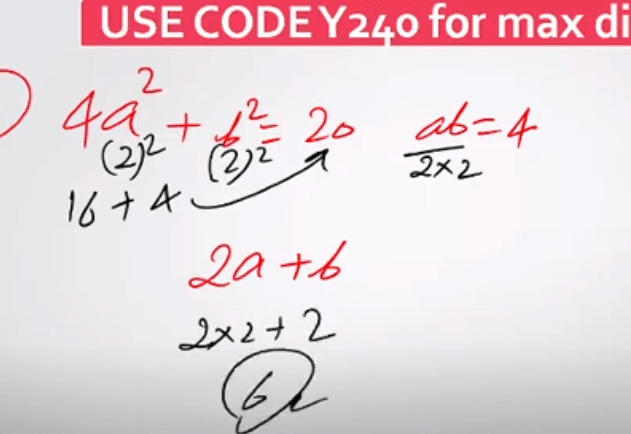 USE CODE Y240 for max di
4a² + b² = 20 ab=4
(2)² (2)² 2×2
16 + 4
2a + b
2×2 + 2
6